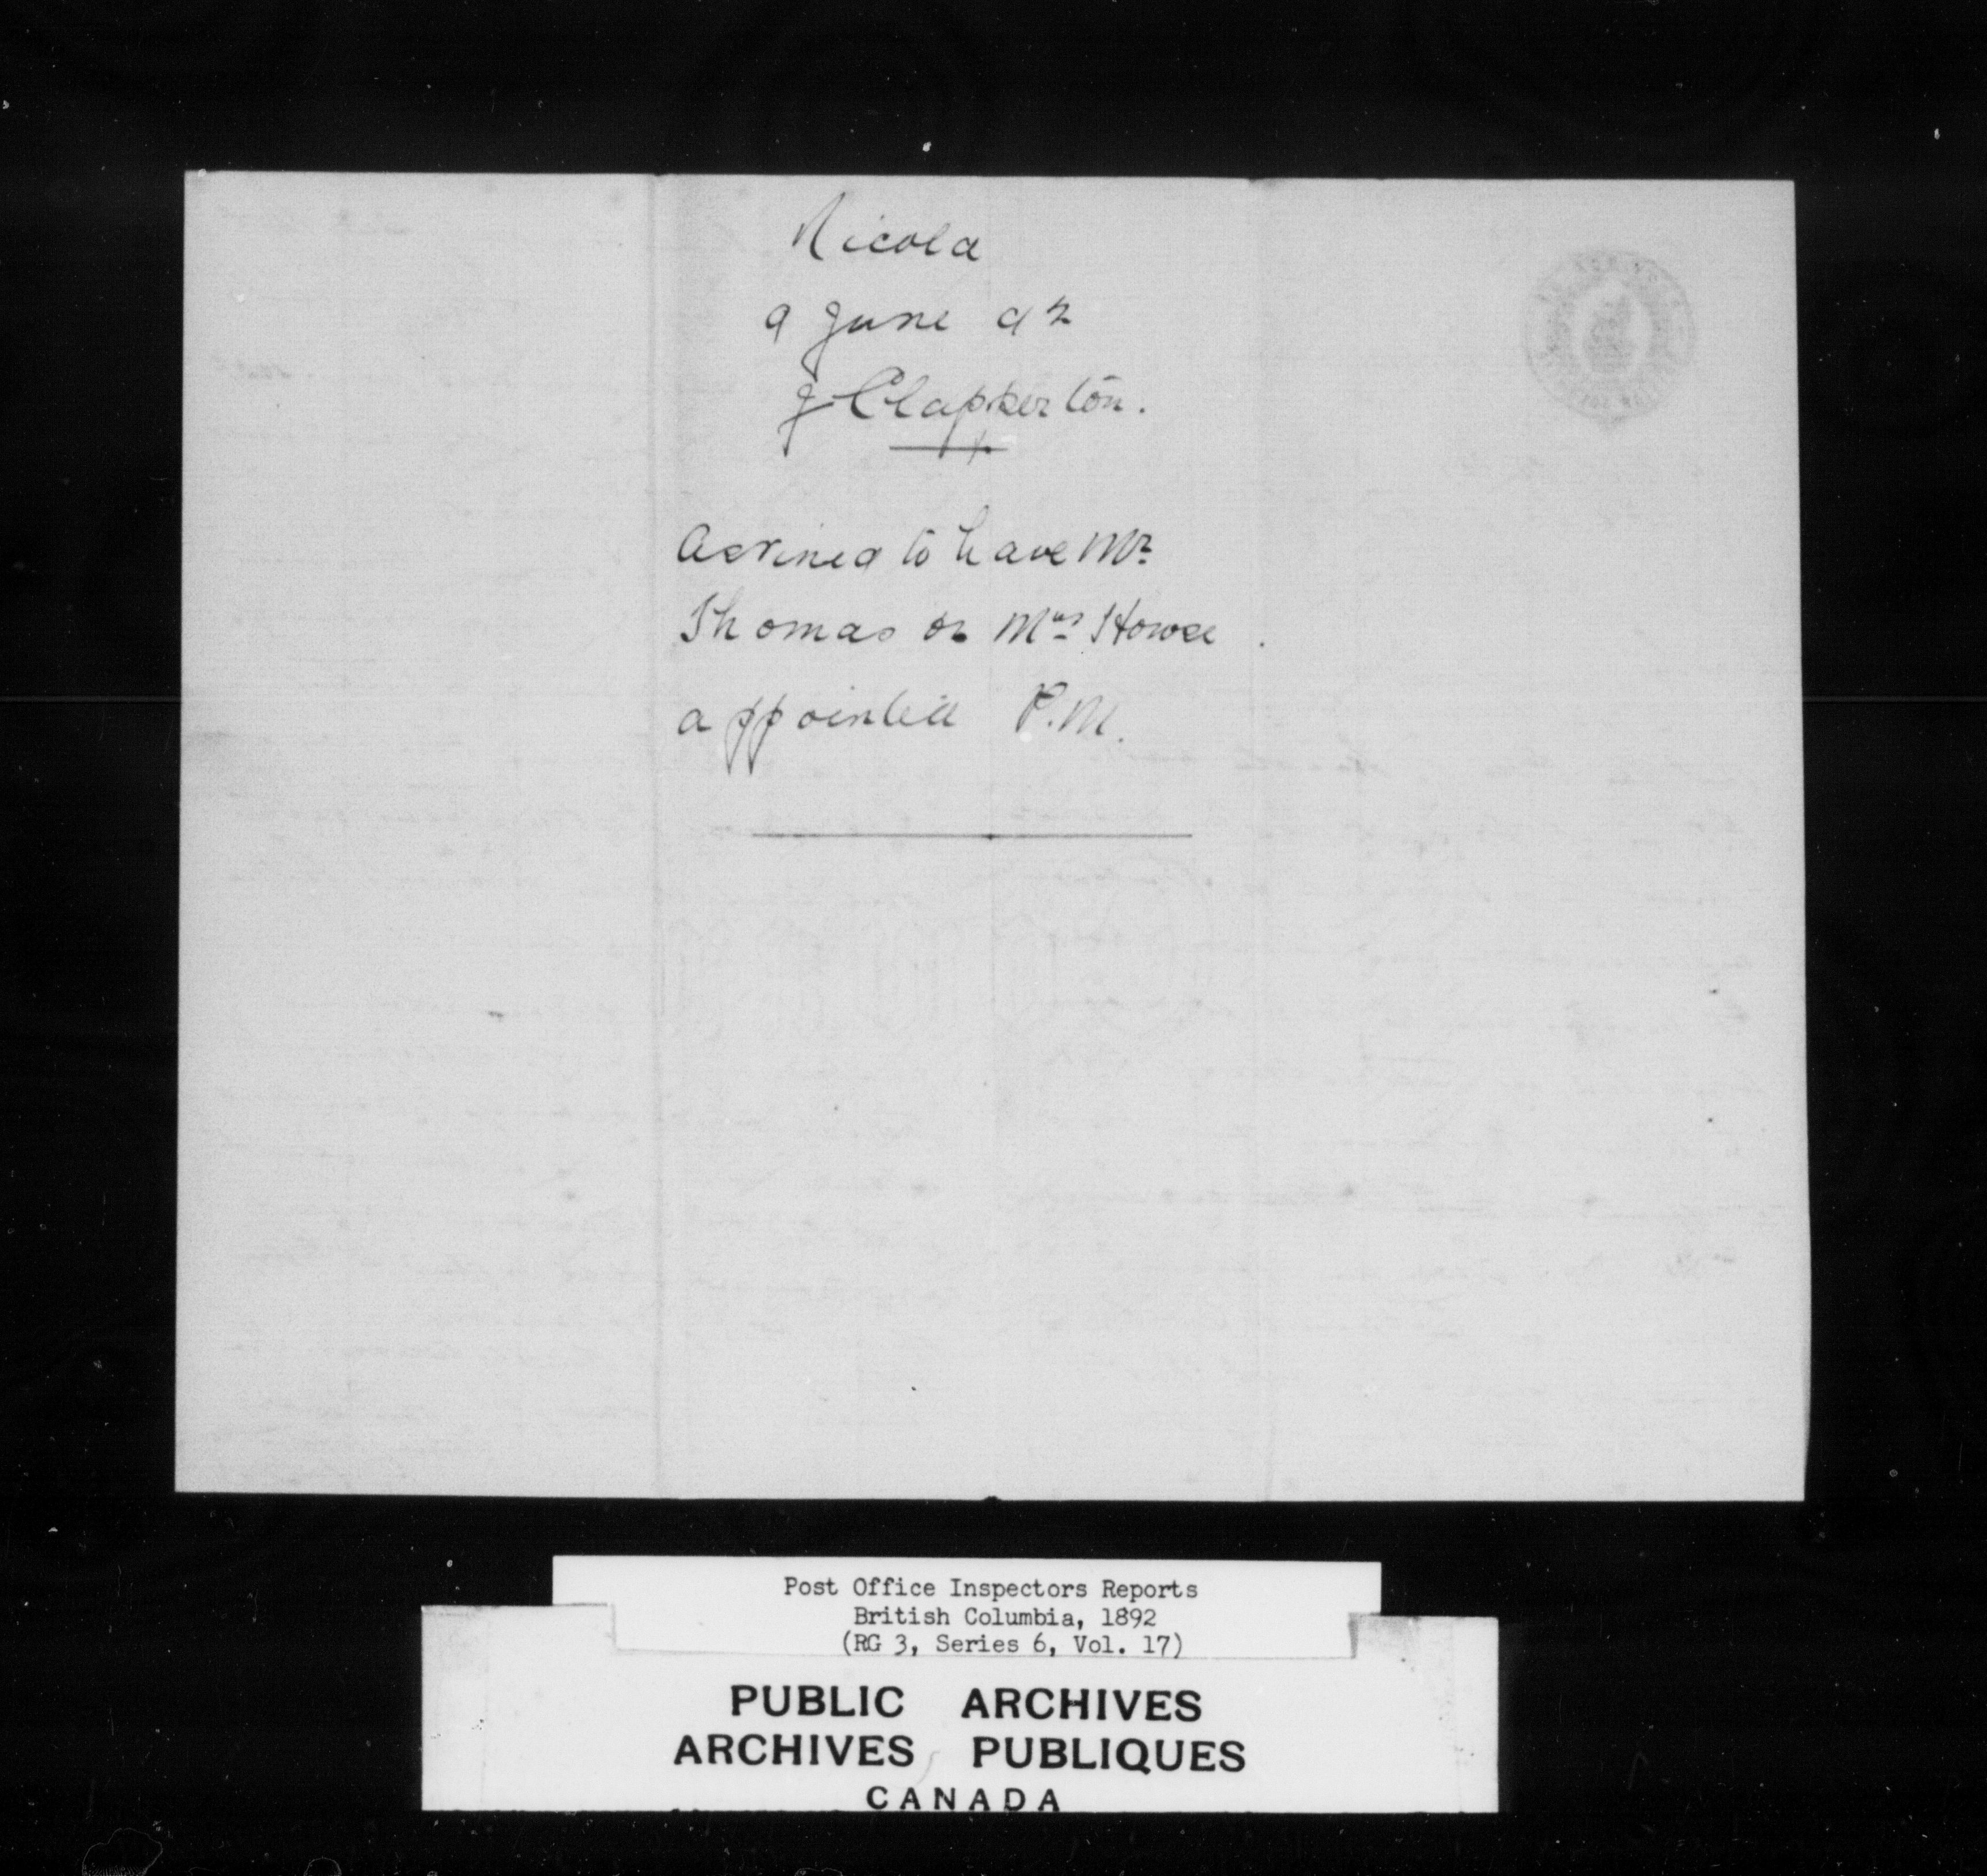 Nicola
9 June 92
J Clapperton.
to have Mr
Thomas or Mrs Howse
appointed P.M.
Post Office Inspectors Reports
British Columbia, 1892
(RG 3, Series 6, Vol. 17)
PUBLIC ARCHIVES
ARCHIVES PUBLIQUES
CANADA